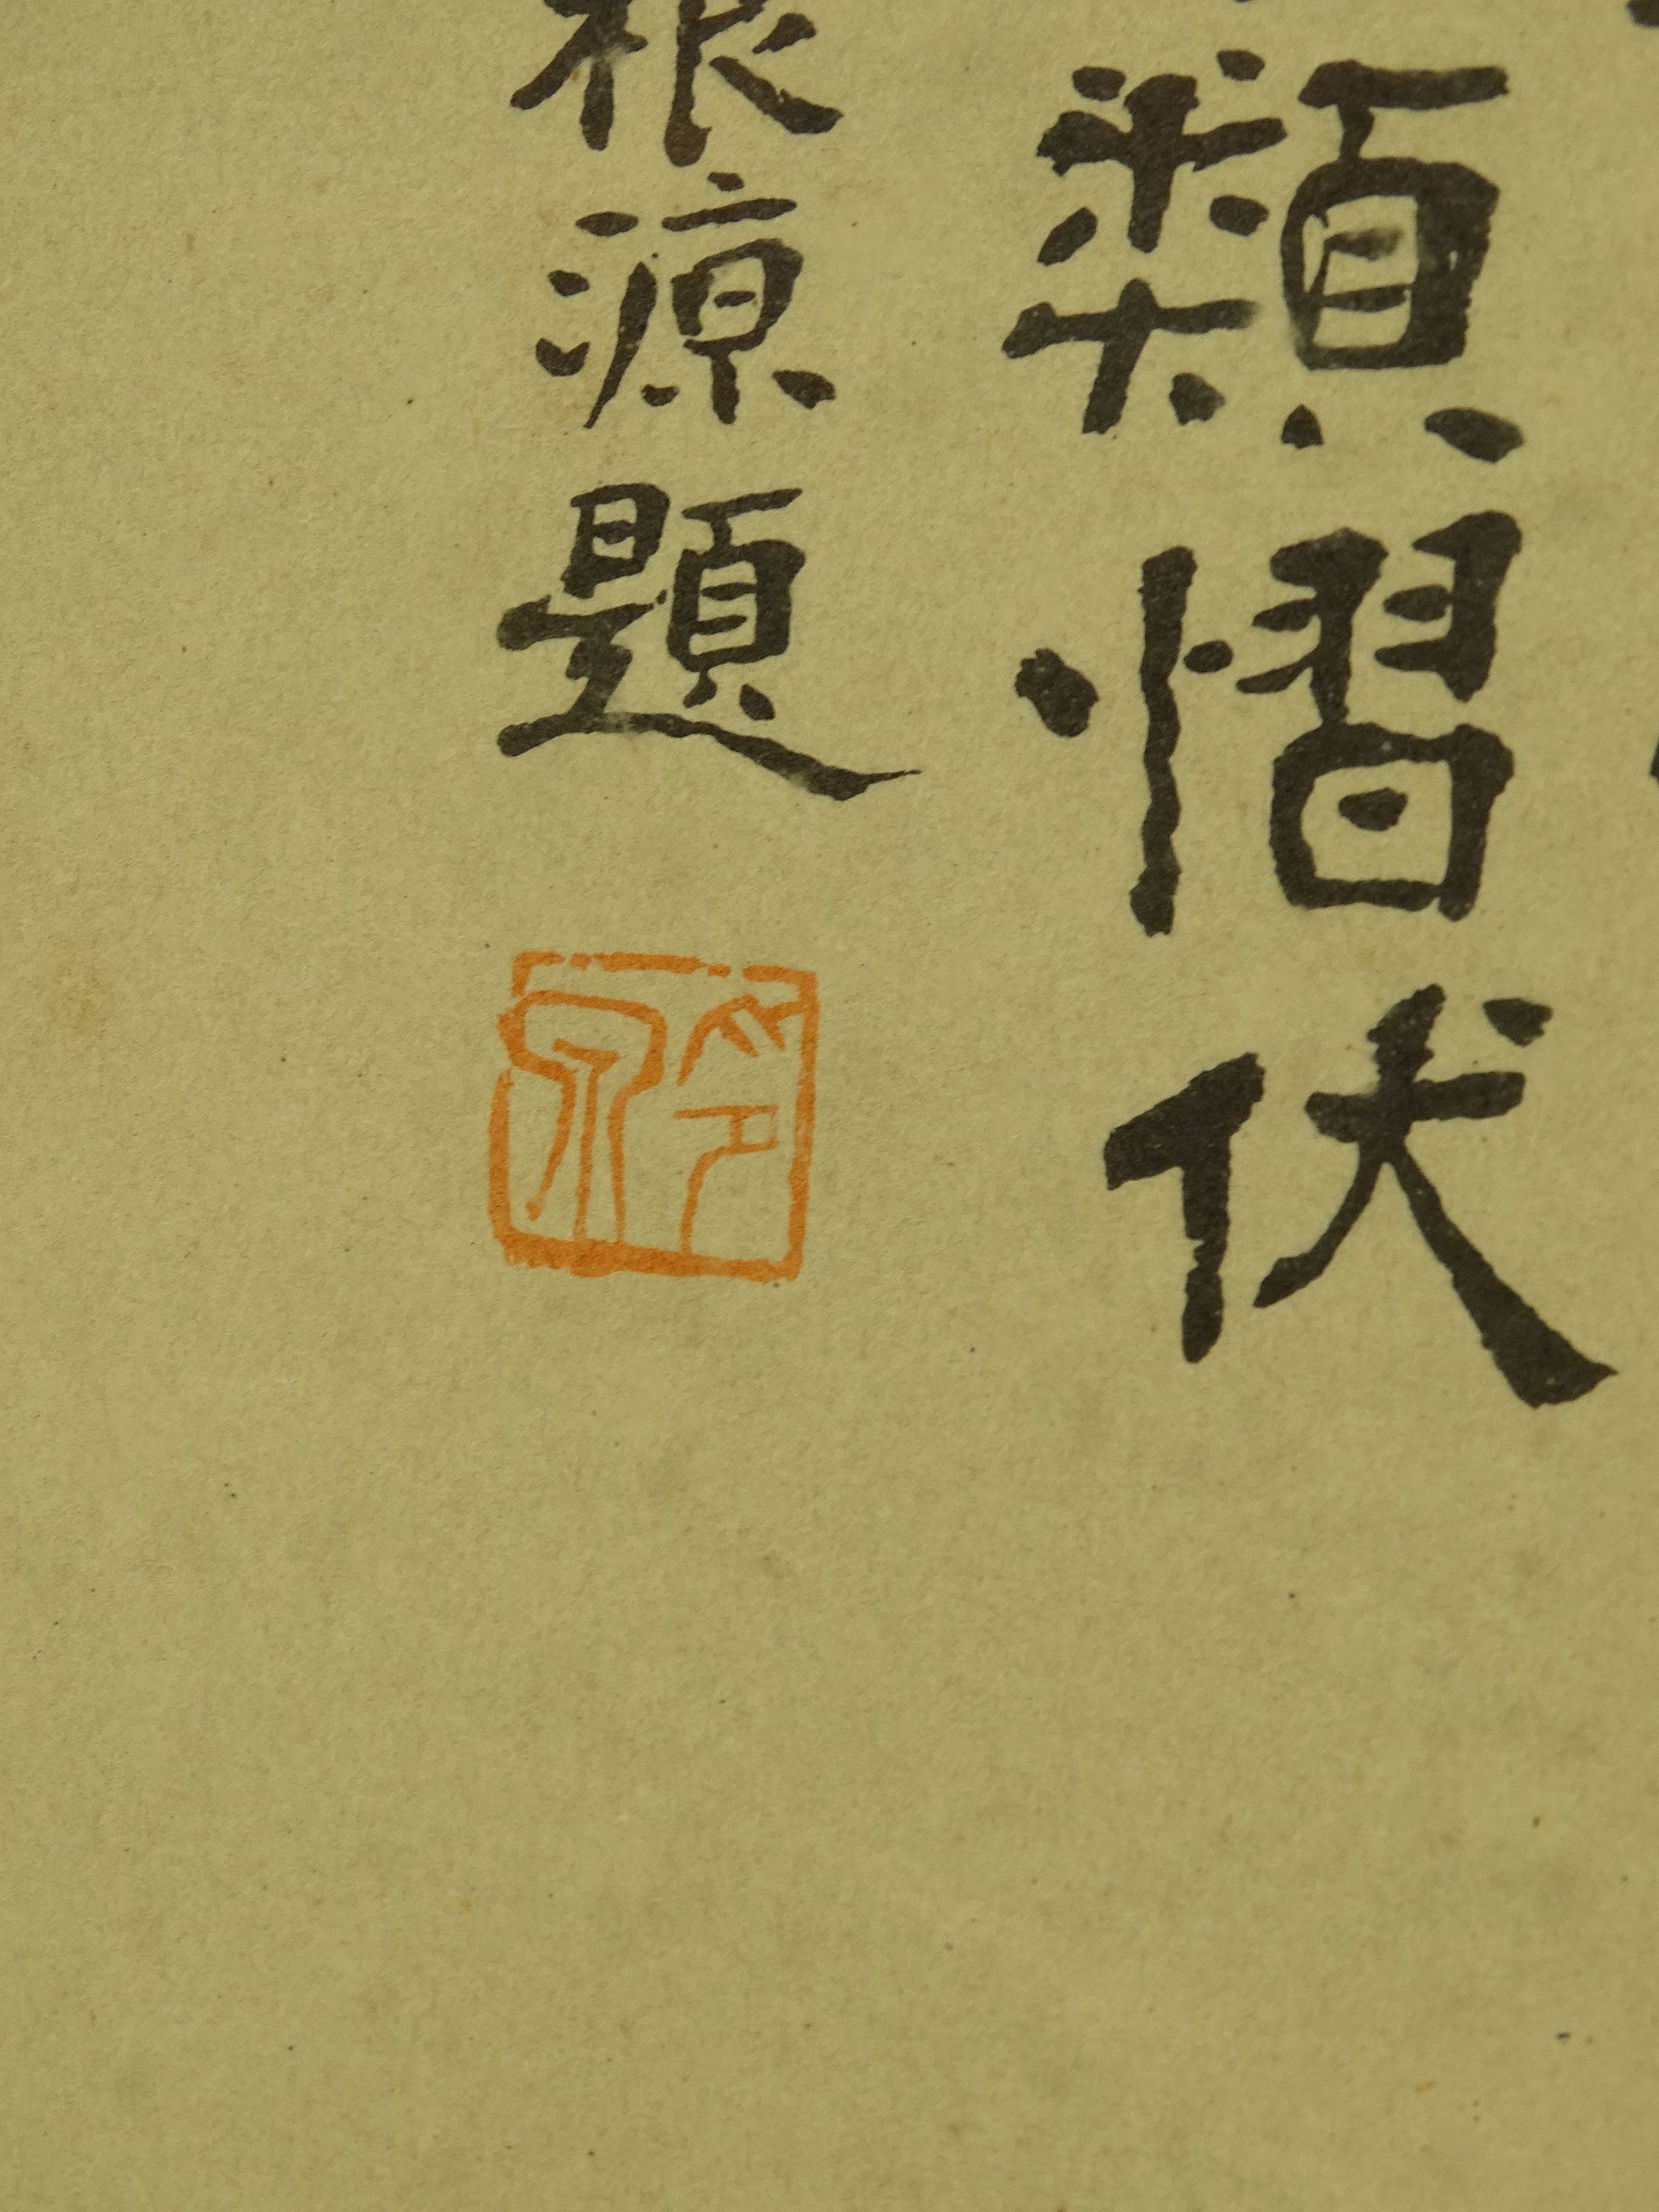 類慴伏
根源題